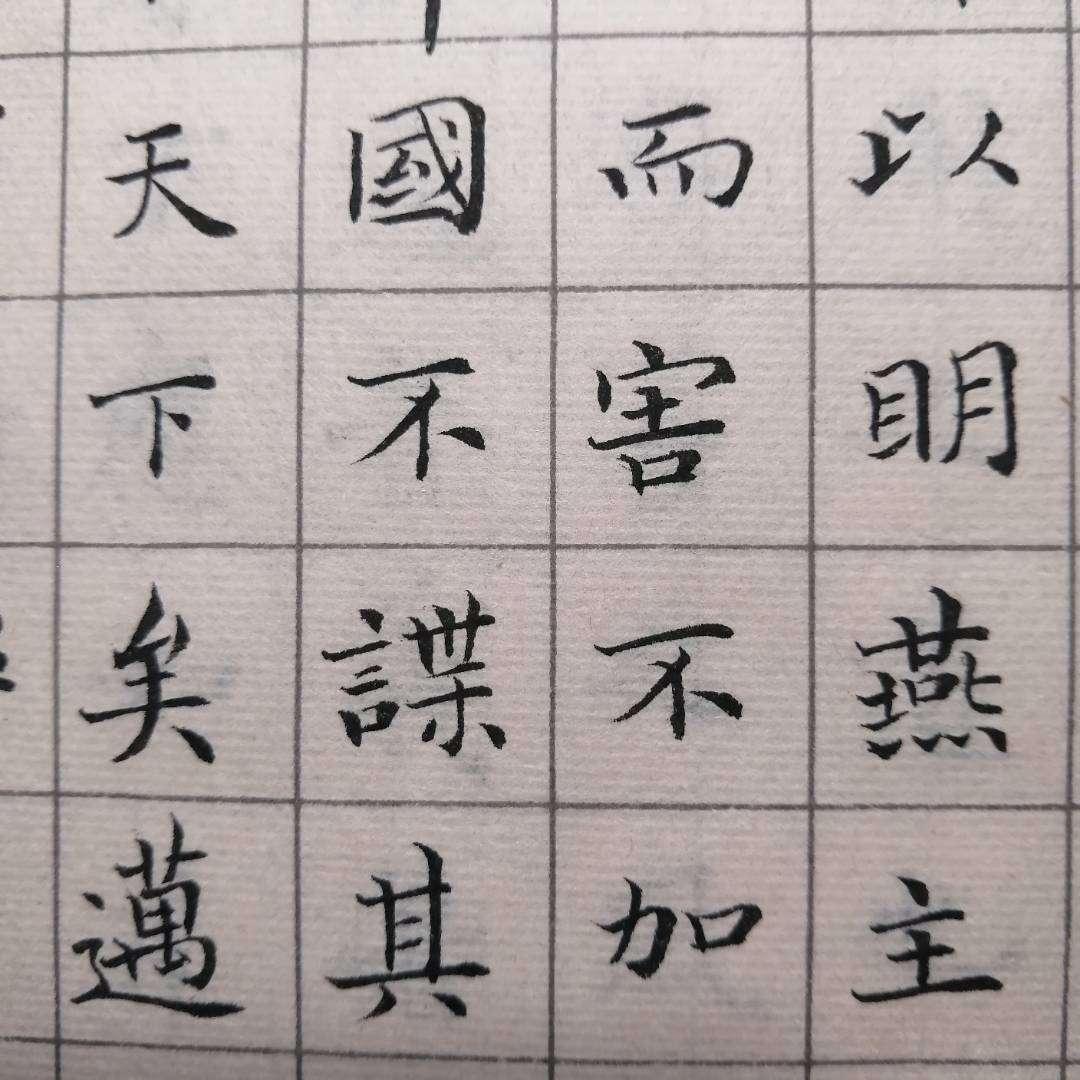 以明燕主
而害不加
國不諜其
天下矣邁